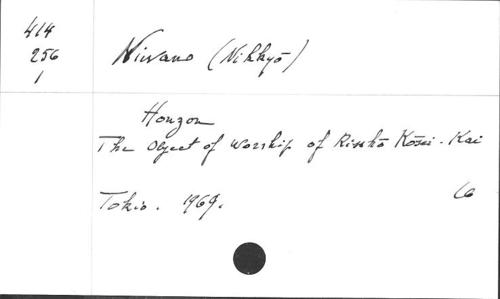 414
256
1
Niwano (Nikkyō)
Honzon
The object of worship of Risshō Kōsei-Kai
Tokio. 1969.